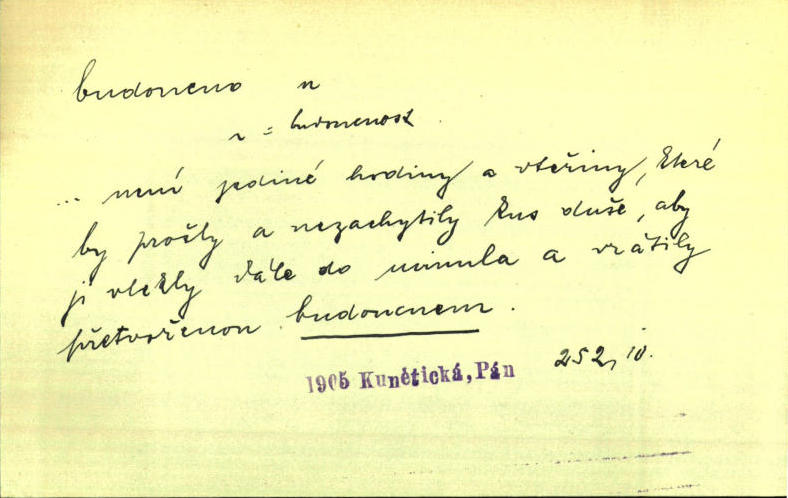 budoucno n
n = budoucnost
... není jediné hodiny a vteřiny, které
by prošly a nezachytily kus duše, aby
ji vlekly dále do minula a vrátily
přetvořenou budoucnem.
1905 Kunětická, Pán 252, 10.